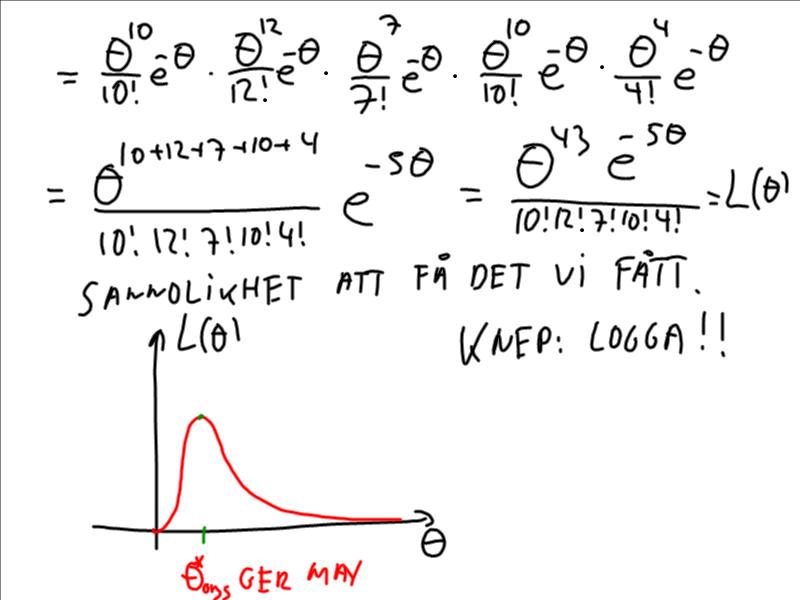 = θ^10/10! e^-θ · θ^12/12! e^-θ · θ^7/7! e^-θ · θ^10/10! e^-θ · θ^4/4! e^-θ
= θ^10+12+7+10+4/10! 12! 7! 10! 4! e^-5θ = θ^43 e^-5θ/10! 12! 7! 10! 4! = L(θ)
SANNOLIKHET ATT FÅ DET VI FÅTT.
KNEP: LOGGA!!
L(θ)
θ
θ*obs GER MAX